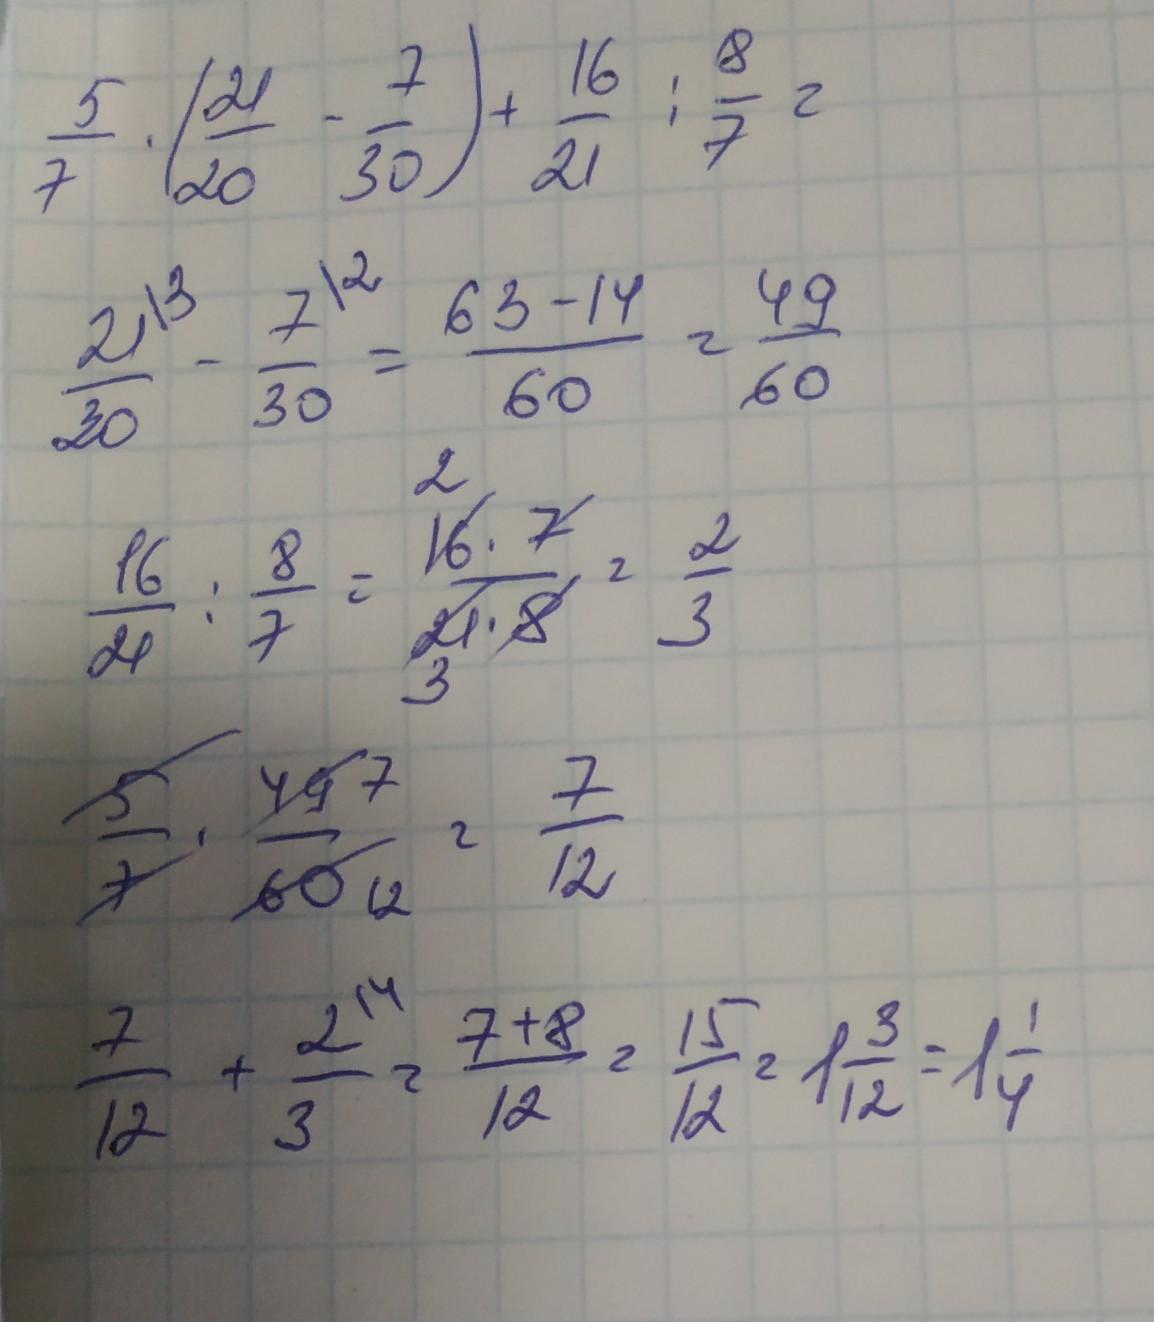 5/7 · (21/20 - 7/30) + 16/21 : 8/7 =
21\3/20 - 7\2/30 = 63-14/60 = 49/60
16/21 : 8/7 = 2 16 · 7/21 · 8 3 = 2/3
5/7 · 49 7/60 12 = 7/12
7/12 + 2\4/3 = 7+8/12 = 15/12 = 1 3/12 = 1 1/4